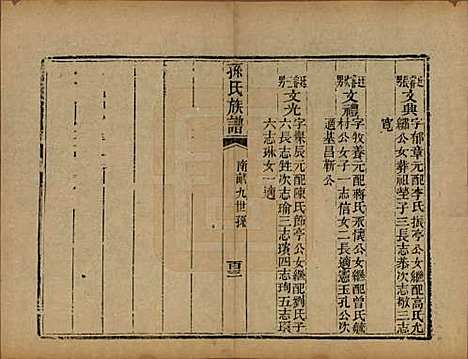 文典
字郁章元配李氏振亭公女繼配高氏允
繡公女葬祖塋子三長志泰次志敬三志
寬
文禮
字牧養元配蔣氏永懷公女繼配曾氏毓
村公女子一志信女二長適憲玉孔公次
適基昌靳公
文光
字燦辰元配陳氏節亭公女繼配劉氏子
六長志甡次志瑜三志璸四志珣五志環
六志琳女一適
孫氏族譜
南貳九世孫
百三